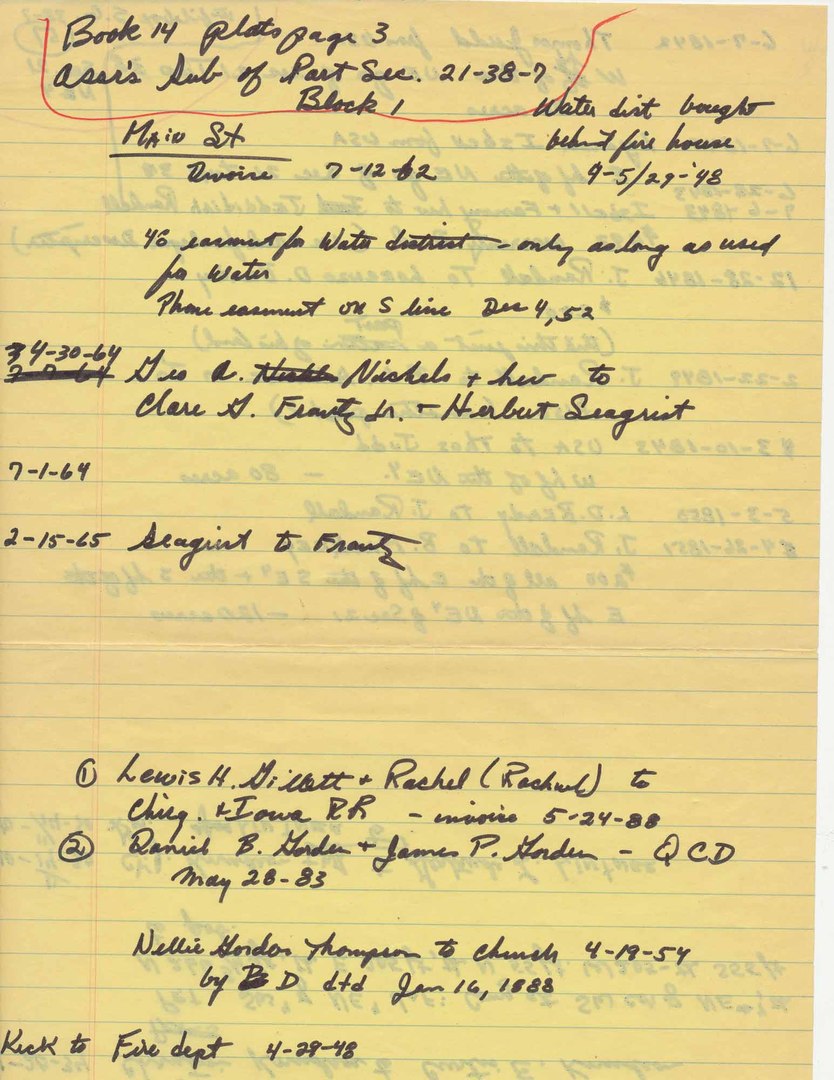 Book 14 plats page 3
Assr's Sub of Part Sec. 21-38-7
Block 1
Water dist bought
behind fire house
9-5/29-'48
Main St
Divoire 7-12-62
48 easment for Water district - only as long as used
for Water
Phone easment on S line Dec 4, 52
4-30-64
Geo A. Nickels + her to
Clare G. Frantz Jr. + Herbert Seagrist
7-1-64
2-15-65 Seagrist to Frantz
① Lewis H. Gillett + Rachel (Rachael) to
Chicg. + Iowa RR - invoire 5-24-88
② Daniel B. Gorden + James P. Gorden - QCD
May 28-83
Nellie Gordon Thompson to Church 4-19-54
by D dtd Jan 16, 1888
Keck to Fire dept 4-29-48